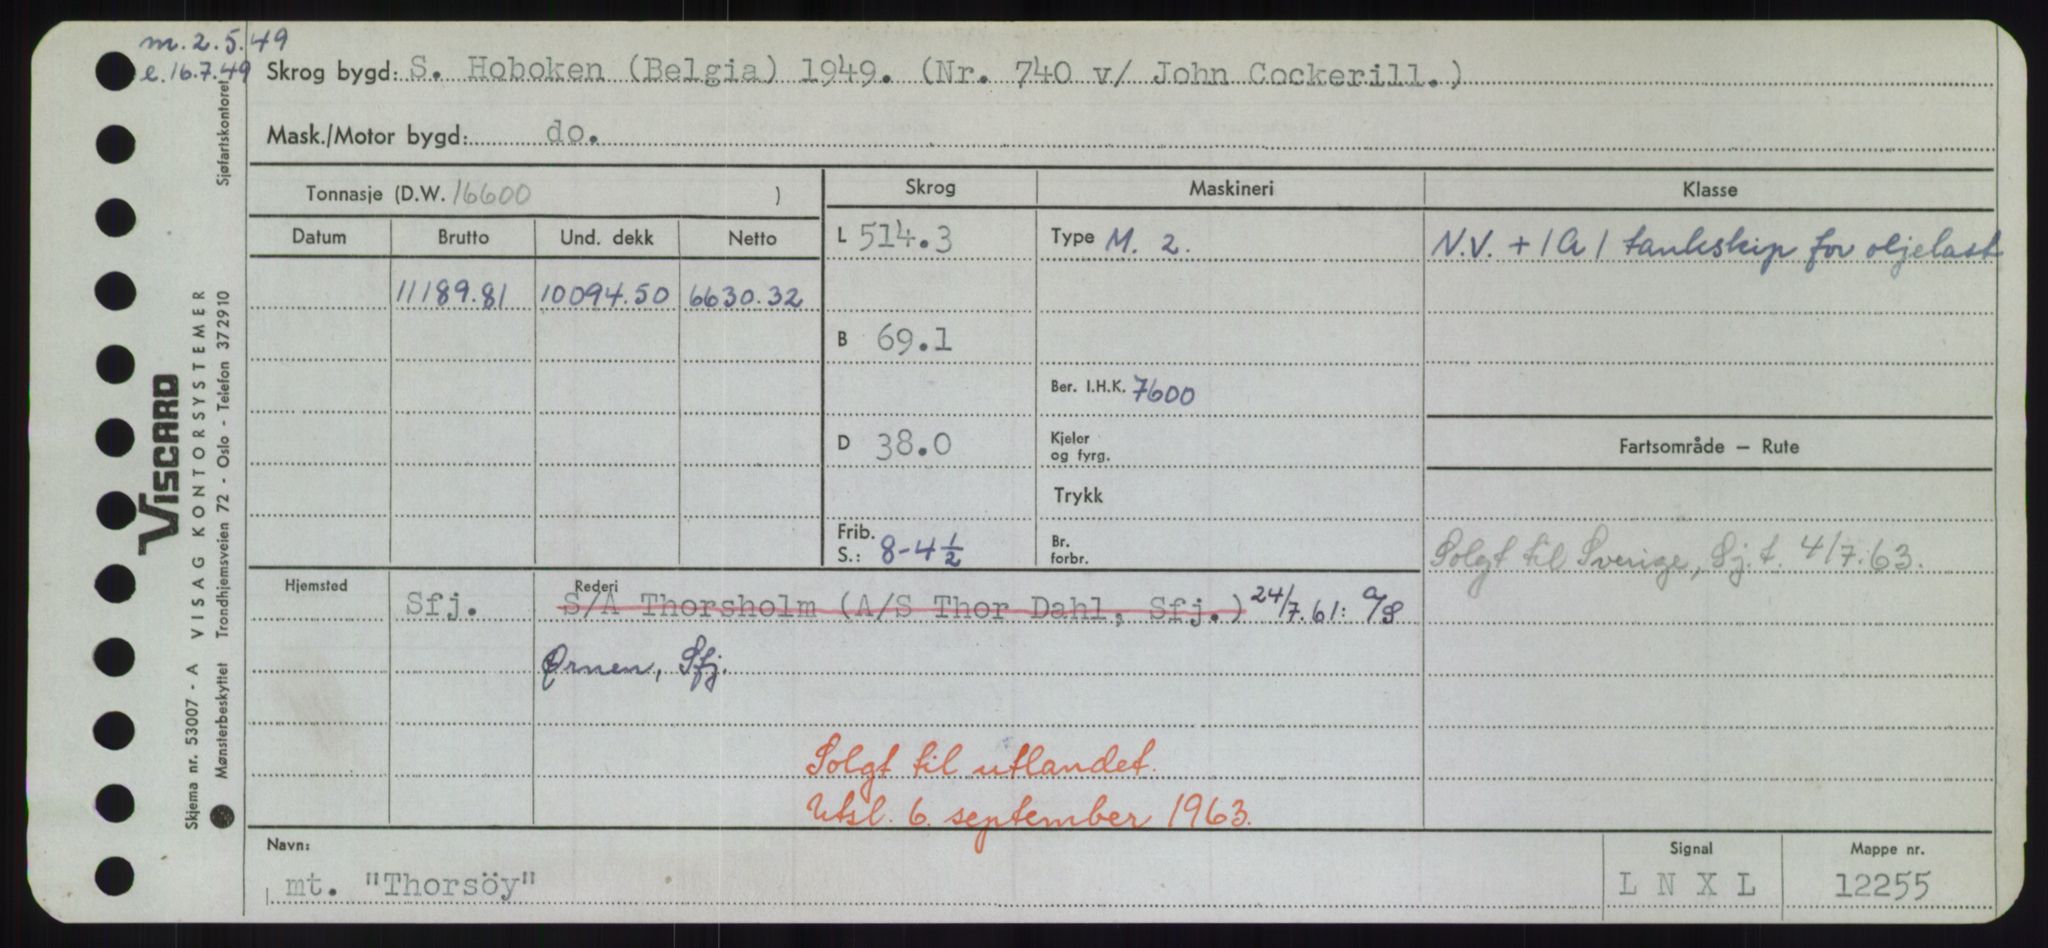 m. 2.5.49
e. 16.7.49
Skrog bygd: S. Hoboken (Belgia) 1949. (Nr. 740 v/ John Cockerill.)
Mask./Motor bygd: do.
Tonnasje (D.W. 16600 )
Skrog
Maskineri
Klasse
Datum Brutto Und. dekk Netto
L 514.3
Type M. 2.
N.V. + 1A1 tankskip for oljelast
11189.81 10094.50 6630.32
B 69.1
Ber. I.H.K. 7600
D 38.0
Kjeler
og fyrg.
Fartsområde – Rute
Trykk
Frib.
S.: 8-4½
Br.
forbr.
Solgt til Sverige, Sj.t. 4/7.63.
Hjemsted
Rederi
Sfj. S/A Thorsholm (A/S Thor Dahl, Sfj.) 24/7.61: A/S
Ørnen, Sfj.
Solgt til utlandet.
Utsl. 6. september 1963.
Navn:
mt. "Thorsöy"
Signal
L N X L
Mappe nr.
12255
Sjøfartskontoret
VISCARD
Skjema nr. 53007 - A VISAG KONTORSYSTEMER
Mønsterbeskyttet Trondhjemsveien 72 - Oslo - Telefon 372910